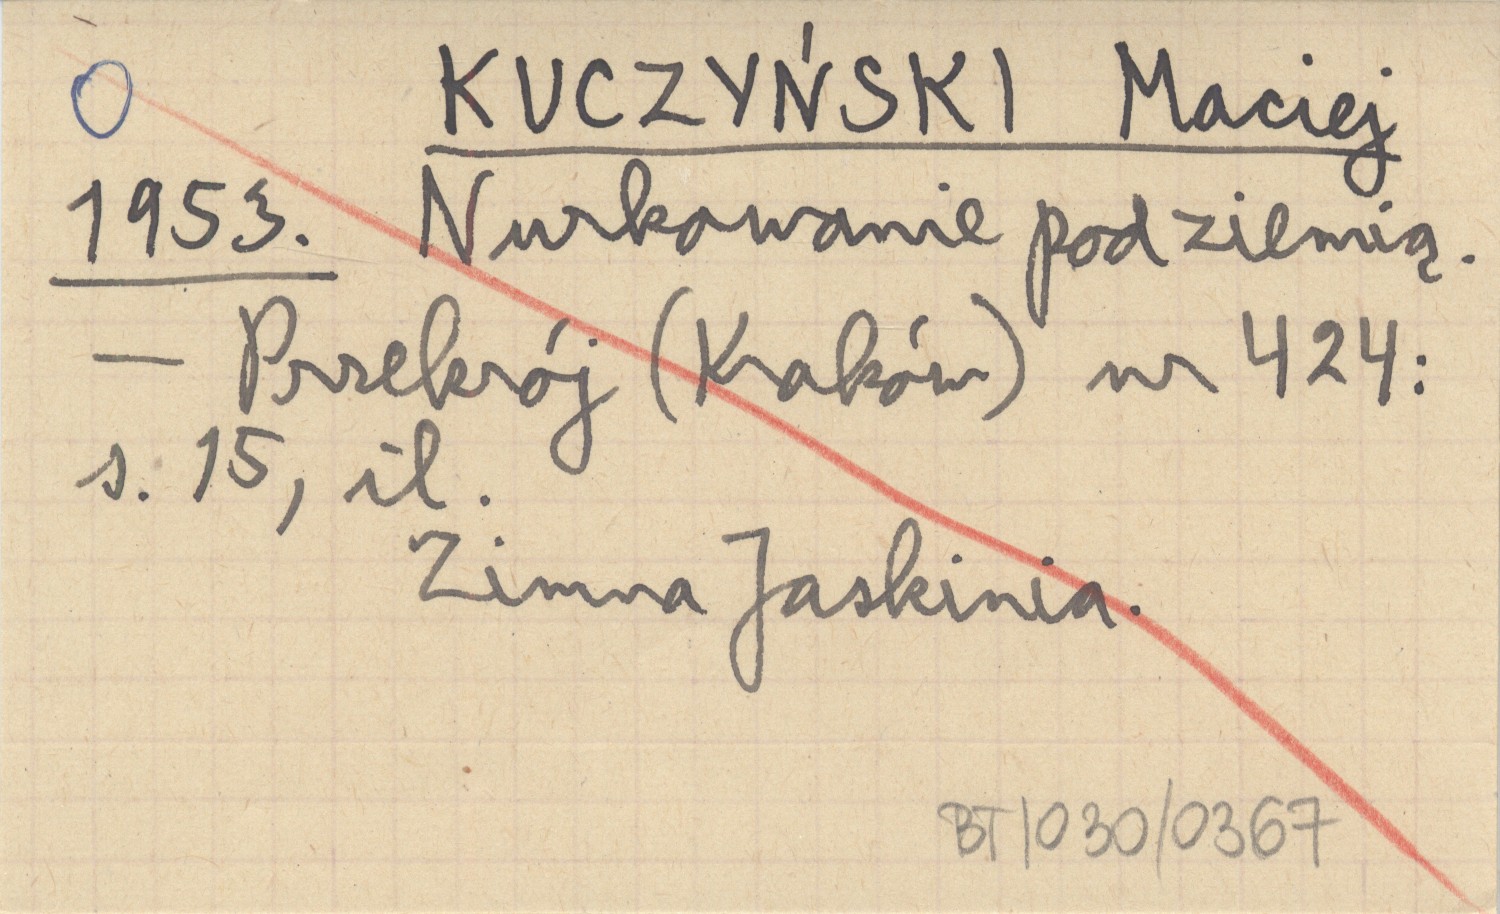 O KUCZYŃSKI Maciej
1953. Nurkowanie pod ziemią.
— Przekrój (Kraków) nr 424:
s. 15, il.
Zimna Jaskinia.
BT/030/0367